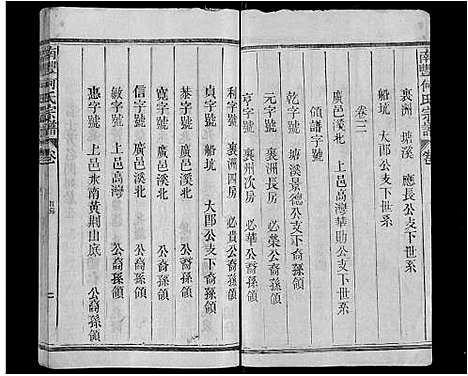 南豐何氏宗譜 卷
襄洲 塘溪 應長公支下世系
船坑 大郎公支下世系
卷三
廣邑溪北 上邑高灣華助公支下世系
領譜字號
乾字號 塘溪景德公支下世系
元字號 襄洲長房 必榮公裔孫領
亨字號 襄洲次房 必華公裔孫領
利字號 襄洲四房 必貴公裔孫領
貞字號 船坑 大郎公裔孫領
恭字號 廣邑溪北 公裔孫領
寬字號 廣邑溪北 公裔孫領
信字號 廣邑溪北 公裔孫領
敏字號 上邑高灣 公裔孫領
惠字號 上邑永南黄荆山底 公裔孫領
南豐何氏宗譜 卷